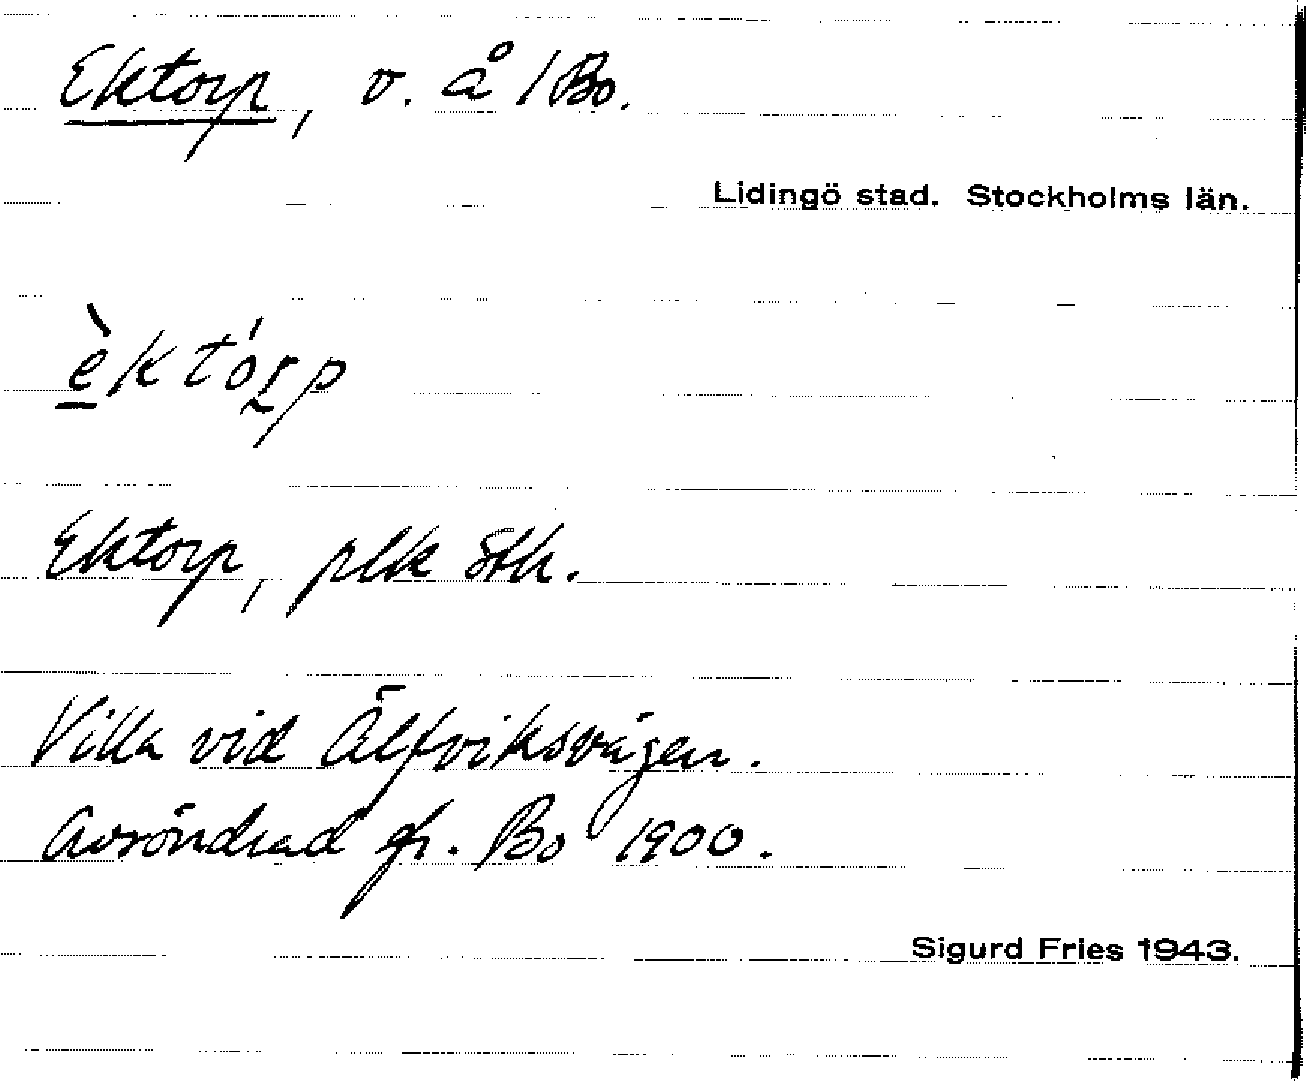 Ektorp, v. å 1 Bo.
Lidingö stad. Stockholms län.
èktórp
Ektorp, plk
Villa vid Älfviksvägen.
Avsöndrad fr. Bo 1900.
Sigurd Fries 1943.